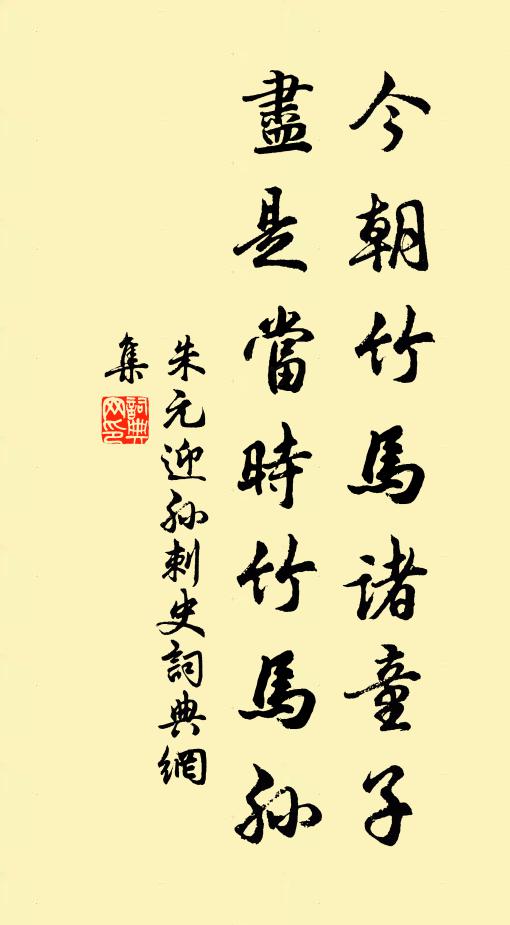 今朝竹馬諸童子
盡是當時竹馬孫
朱元迎孙刺史詞典網
集
詞典
网印